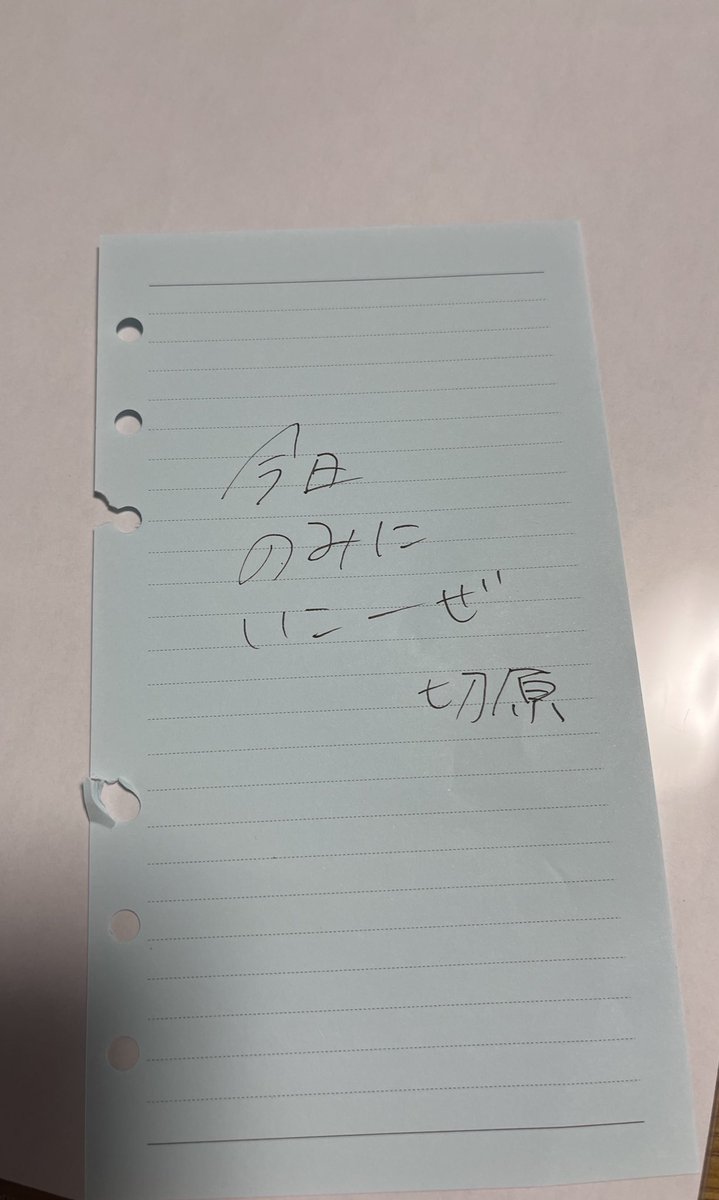 今日
のみに
いこーぜ
切原